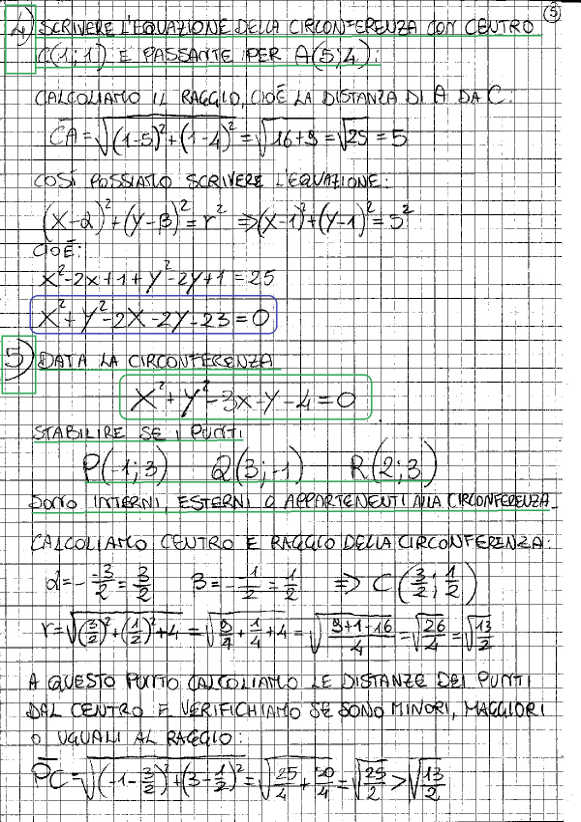 5
4) SCRIVERE L'EQUAZIONE DELLA CIRCONFERENZA CON CENTRO
C(1;1) E PASSANTE PER A(5;4).
CALCOLIAMO IL RAGGIO, CIOÈ LA DISTANZA DI A DA C:
CA = √((1-5)²+(1-4)²) = √(16+9) = √25 = 5
COSÌ POSSIAMO SCRIVERE L'EQUAZIONE:
(x-α)²+(y-β)² = r² ⇒ (x-1)²+(y-1)² = 5²
CIOÈ:
x²-2x+1+y²-2y+1 = 25
x²+y²-2x-2y-23 = 0
5) DATA LA CIRCONFERENZA
x²+y²-3x-y-4 = 0
STABILIRE SE I PUNTI
P(-1;3) Q(3;-1) R(2;3)
SONO INTERNI, ESTERNI O APPARTENENTI ALLA CIRCONFERENZA.
CALCOLIAMO CENTRO E RAGGIO DELLA CIRCONFERENZA:
α = - -3/2 = 3/2 β = - -1/2 = 1/2 ⇒ C(3/2; 1/2)
r = √((3/2)²+(1/2)²+4) = √(9/4+1/4+4) = √((9+1+16)/4) = √(26/4) = √(13/2)
A QUESTO PUNTO CALCOLIAMO LE DISTANZE DEI PUNTI
DAL CENTRO E VERIFICHIAMO SE SONO MINORI, MAGGIORI
O UGUALI AL RAGGIO:
PC = √((-1-3/2)²+(3-1/2)²) = √(25/4+50/4) = √(25/2) > √(13/2)